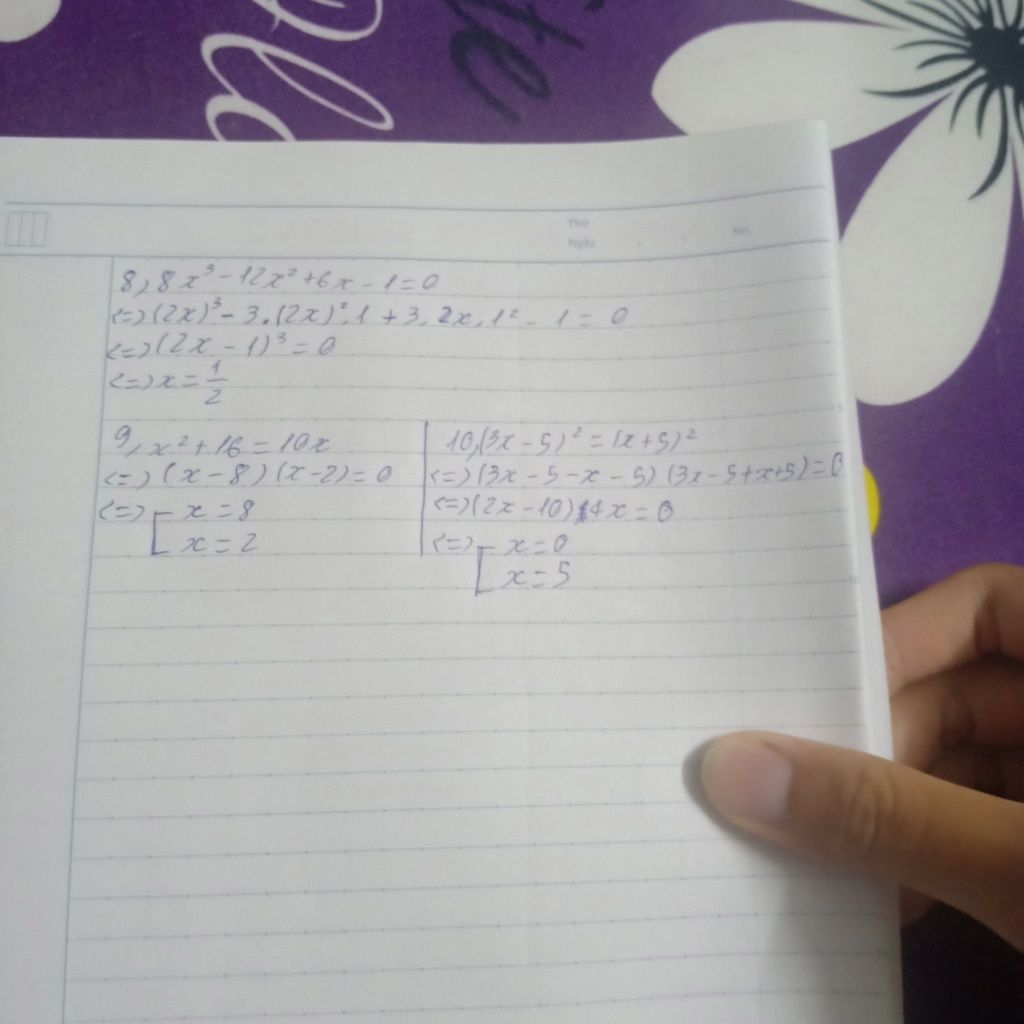 Pla
ite
Thứ
Ngày
No.
8, 8x³ - 12x² + 6x - 1 = 0
<=> (2x)³ - 3.(2x)².1 + 3.2x.1² - 1 = 0
<=> (2x - 1)³ = 0
<=> x = 1/2
9, x² + 16 = 10x
<=> (x - 8)(x - 2) = 0
<=> [ x = 8
x = 2
10, (3x - 5)² = (x + 5)²
<=> (3x - 5 - x - 5)(3x - 5 + x + 5) = 0
<=> (2x - 10) 4x = 0
<=> [ x = 0
x = 5
5
10